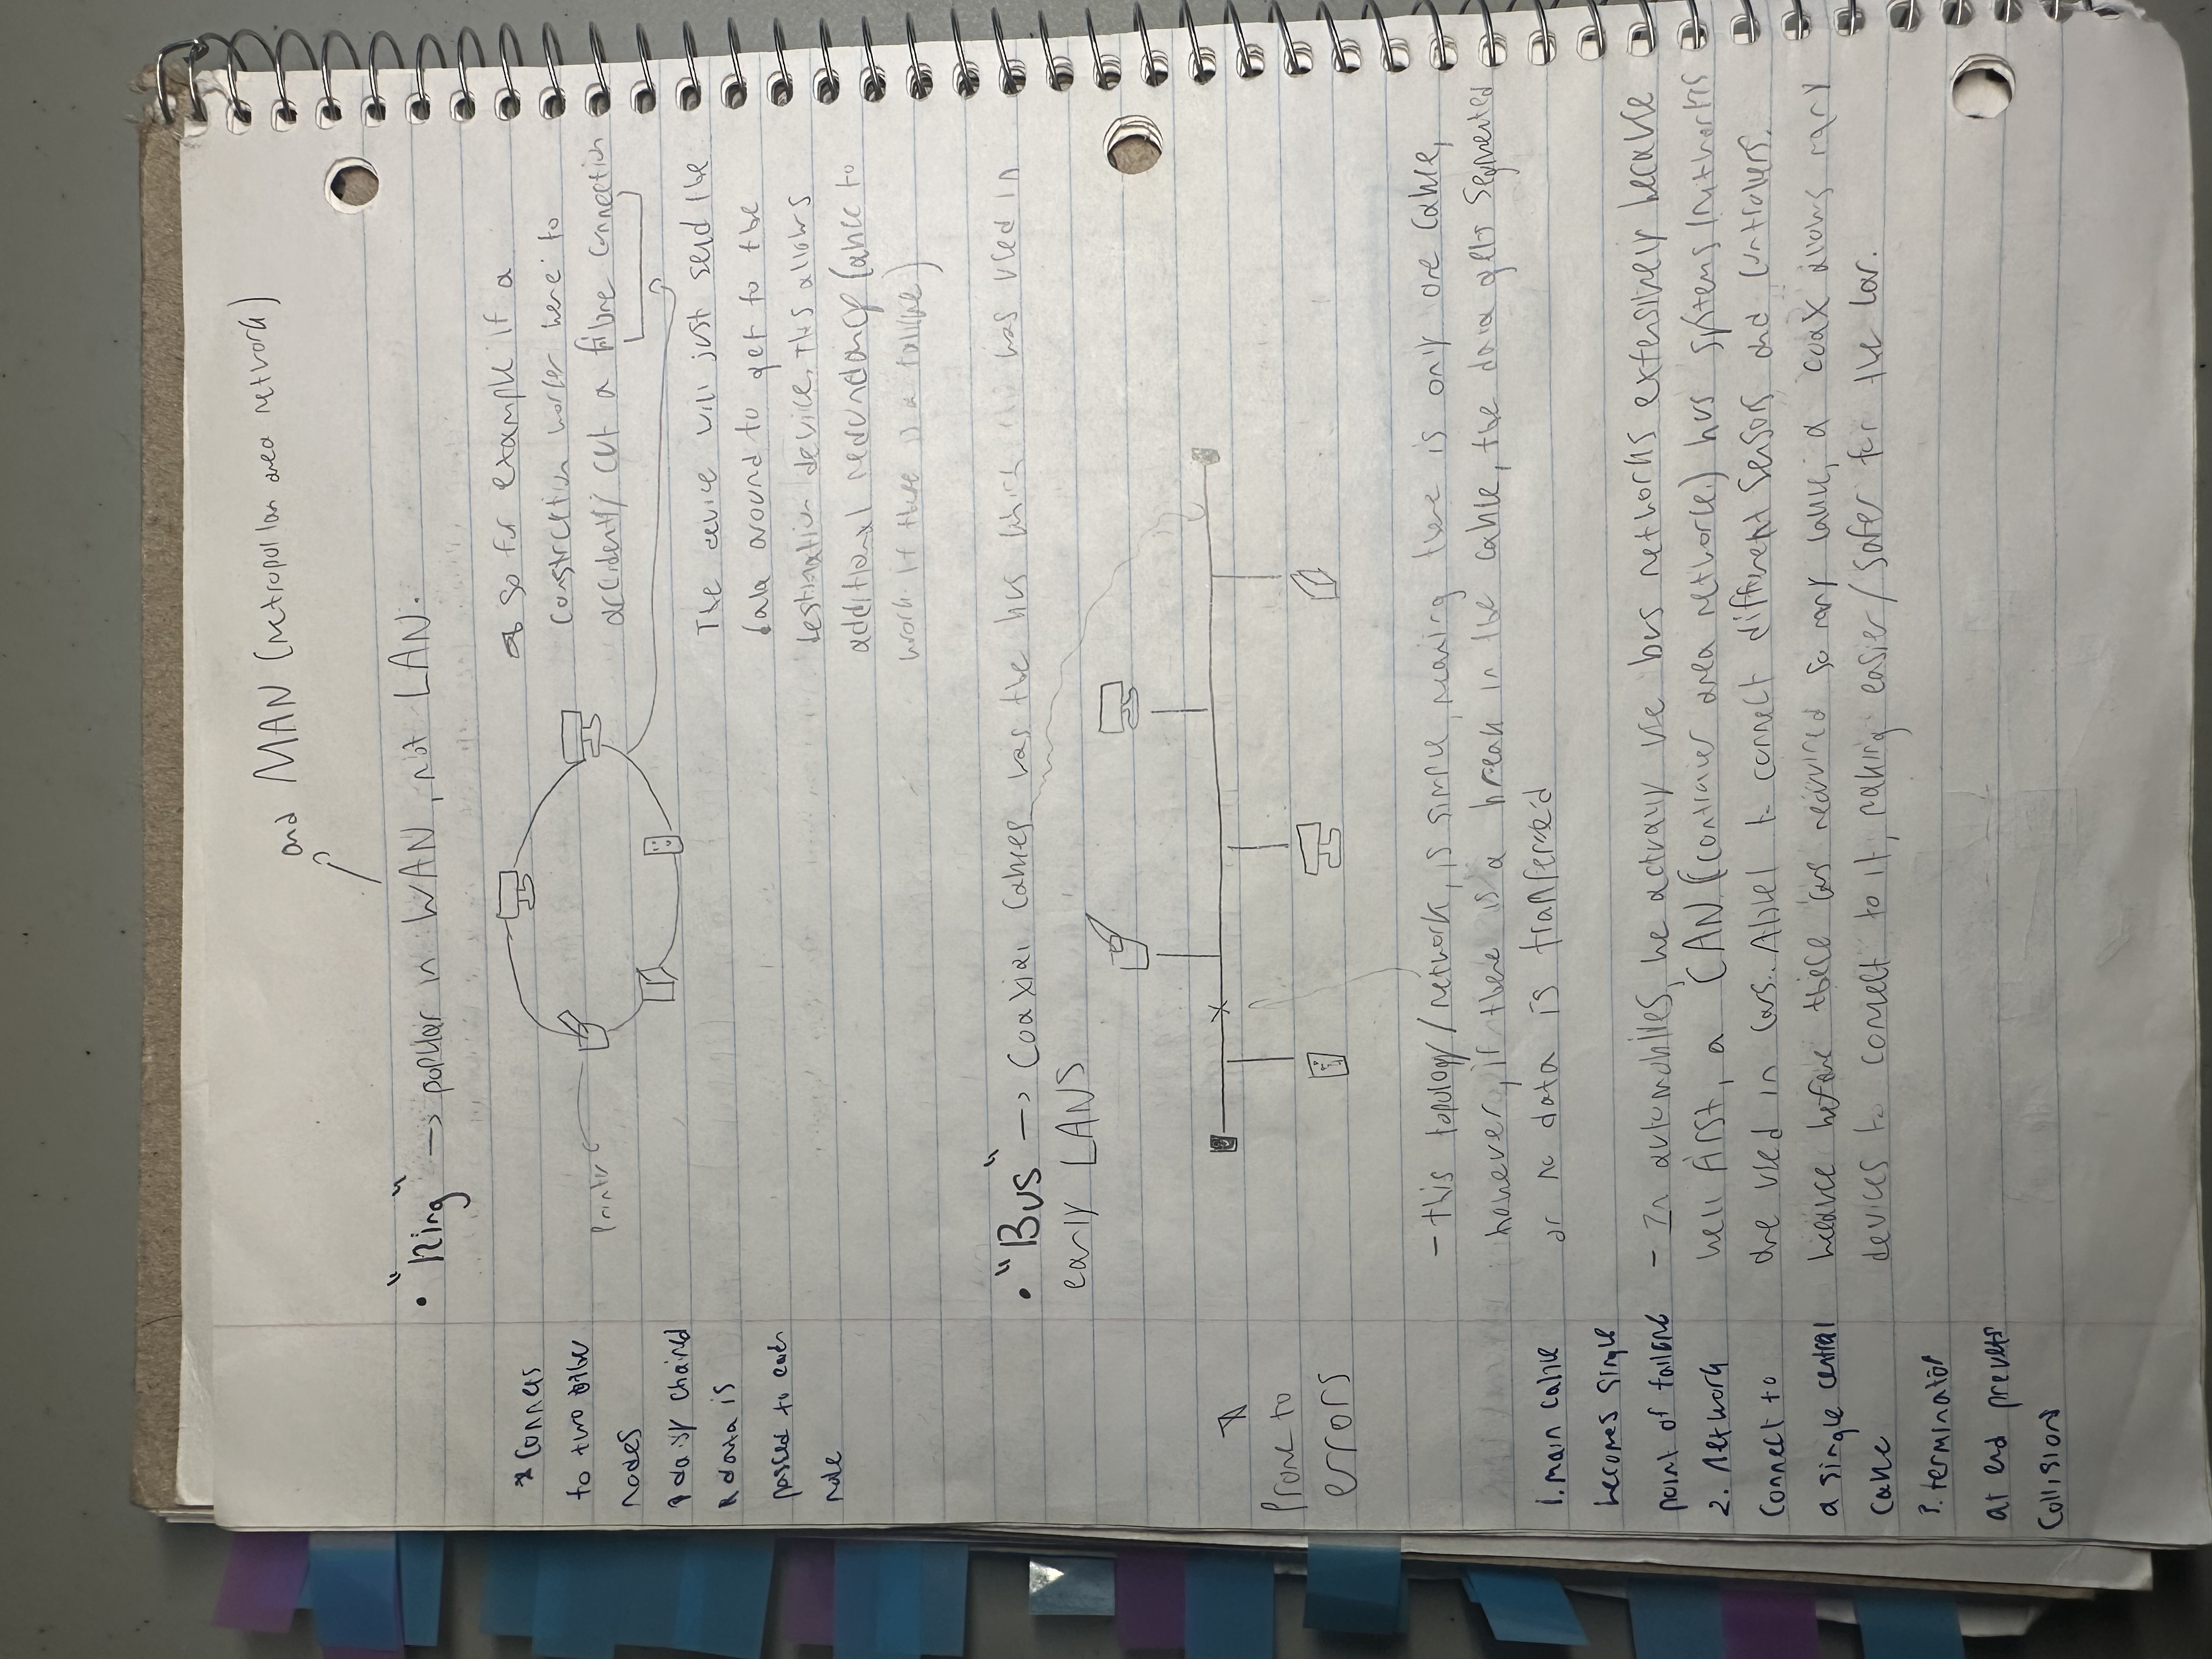 and MAN (metropolitan area network)
• "Ring" -> popular in WAN, not LAN.
* Connects
to two other
nodes
daisy chained
data is
passed to each
node
Printer
so for example if a
construction worker were to
accidently cut a fibre connection
The device will just send the
data around to get to the
destination device. This allows
additional redundancy (able to
work if there is a failure)
• "Bus" -> Coaxial cables was the bus which was used in
early LANS
Prone to
errors
- this topology/network, is simple, meaning there is only one cable,
however, if there is a break in the cable, the data gets segmented
or no data is tranferred
1. main cable
becomes single
point of failure
2. Network
connect to
a single central
cable
3. terminator
at end prevets
collisions
- In automobiles, we actually use bus networks extensively because
well first, a CAN (controller area network) bus systems/networks
are used in cars. to connect different sensors and controllers.
because before these cars required so many cable, a coax allows many
devices to connect to it, making easier/safer for the car.